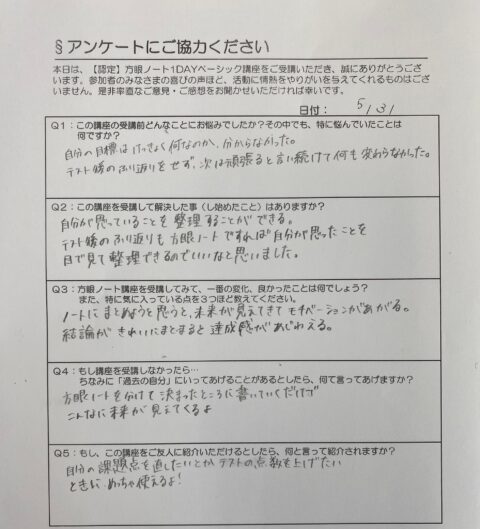 §アンケートにご協力ください
本日は、【認定】方眼ノート1DAYベーシック講座をご受講いただき、誠にありがとうござ
います。参加者のみなさまの喜びの声ほど、活動に情熱をやりがいを与えてくれるものはござ
いません。是非率直なご意見・ご感想をお聞かせいただければ幸いです。
日付： 5/31
Q1：この講座の受講前どんなことにお悩みでしたか？その中でも、特に悩んでいたことは
何ですか？
自分の目標はけっきょく何なのか、分からなかった。
テスト後のふり返りをせず、次は頑張ると言い続けて何も変わらなかった。
Q2：この講座を受講して解決した事（し始めたこと）はありますか？
自分が思っていることを整理することができる。
テスト後のふり返りも方眼ノートですれば自分が思ったことを
目で見て整理できるのでいいなと思いました。
Q3：方眼ノート講座を受講してみて、一番の変化、良かったことは何でしょう？
また、特に気に入っている点を3つほど教えてください。
ノートにまとめようと思うと、未来が見えてきてモチベーションがあがる。
結論がきれいにまとまると達成感があじわえる。
Q4：もし講座を受講しなかったら…
ちなみに「過去の自分」にいってあげることがあるとしたら、何て言ってあげますか？
方眼ノートを分けて決まったところに書いていくだけで
こんなに未来が見えてくるよ
Q5：もし、この講座をご友人に紹介いただけるとしたら、何と言って紹介されますか？
自分の課題点を直したいとかテストの点数を上げたい
ときに、めっちゃ使えるよ！